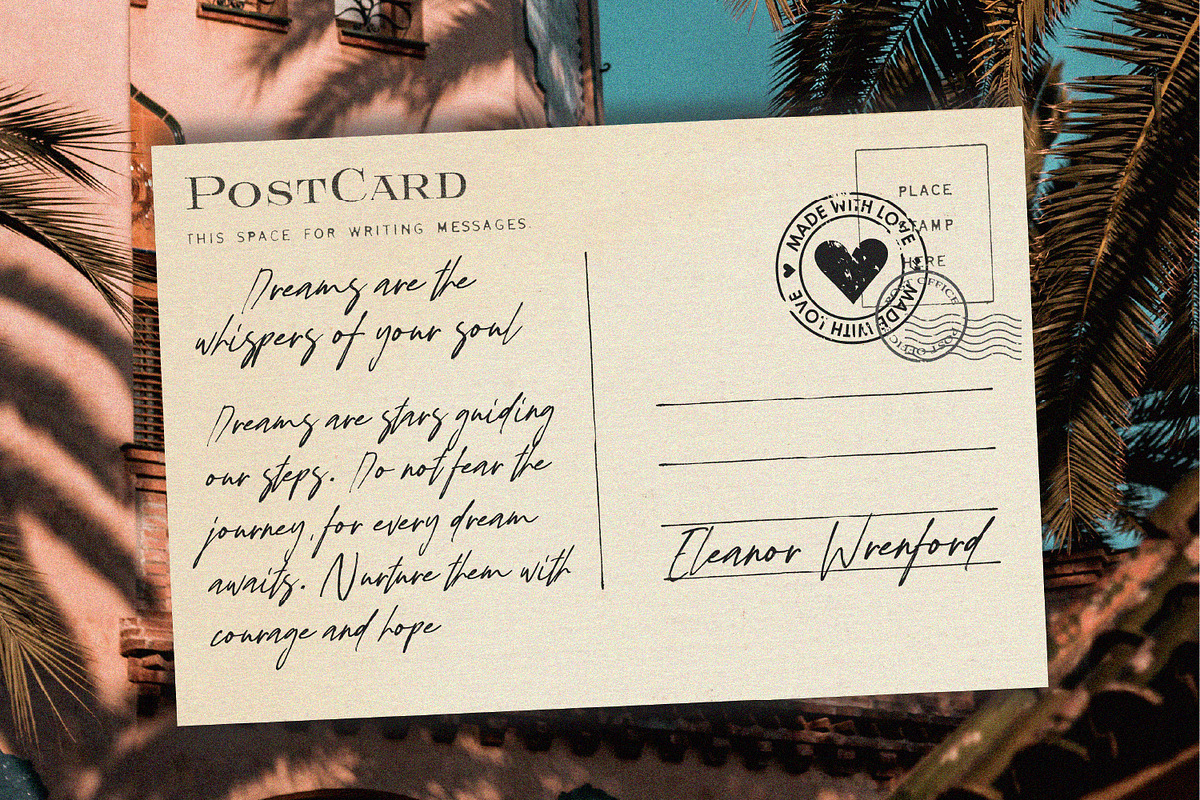 PostCard
THIS SPACE FOR WRITING MESSAGES.
Dreams are the
whispers of your soul
Dreams are stars guiding
our steps. Do not fear the
journey, for every dream
awaits. Nurture them with
courage and hope
PLACE
STAMP
HERE
MADE WITH LOVE
MADE WITH LOVE
POST OFFICE
POST OFFIC
Eleanor Wrenford